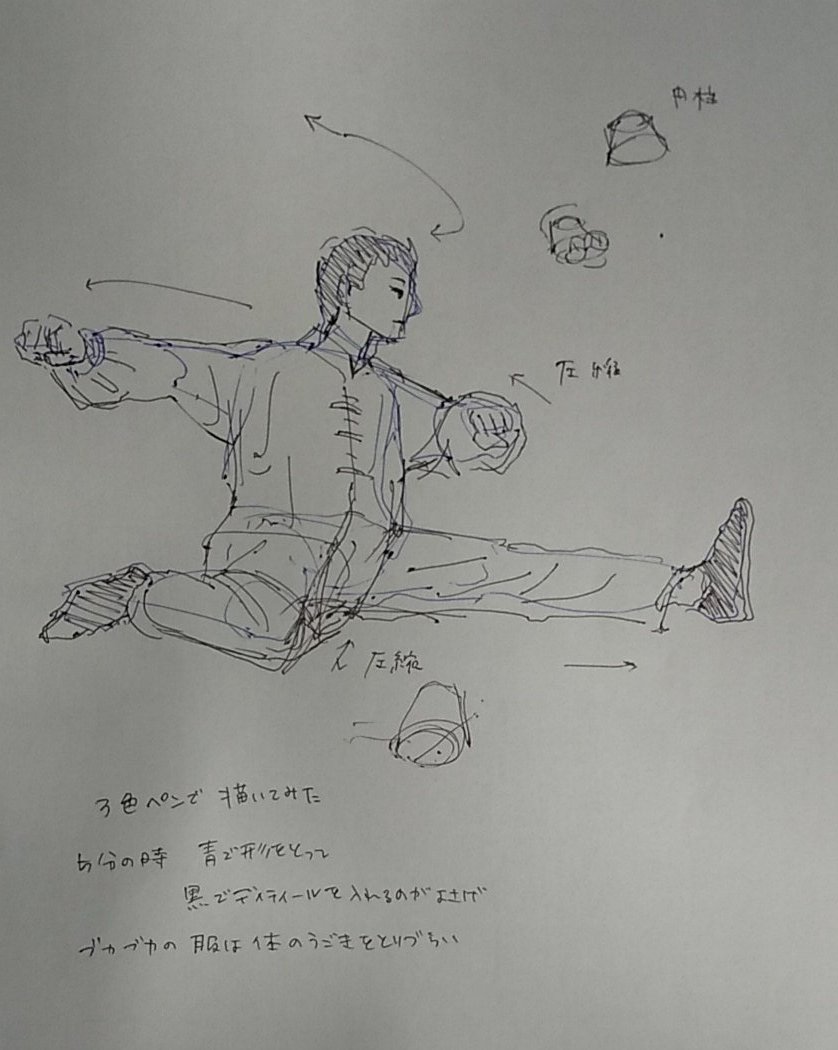 円柱
圧縮
圧縮
3色ペンで描いてみた
5分の時 青で形をとって
黒でディティールを入れるのがよさげ
ブカブカの服は体のうごきをとりづらい